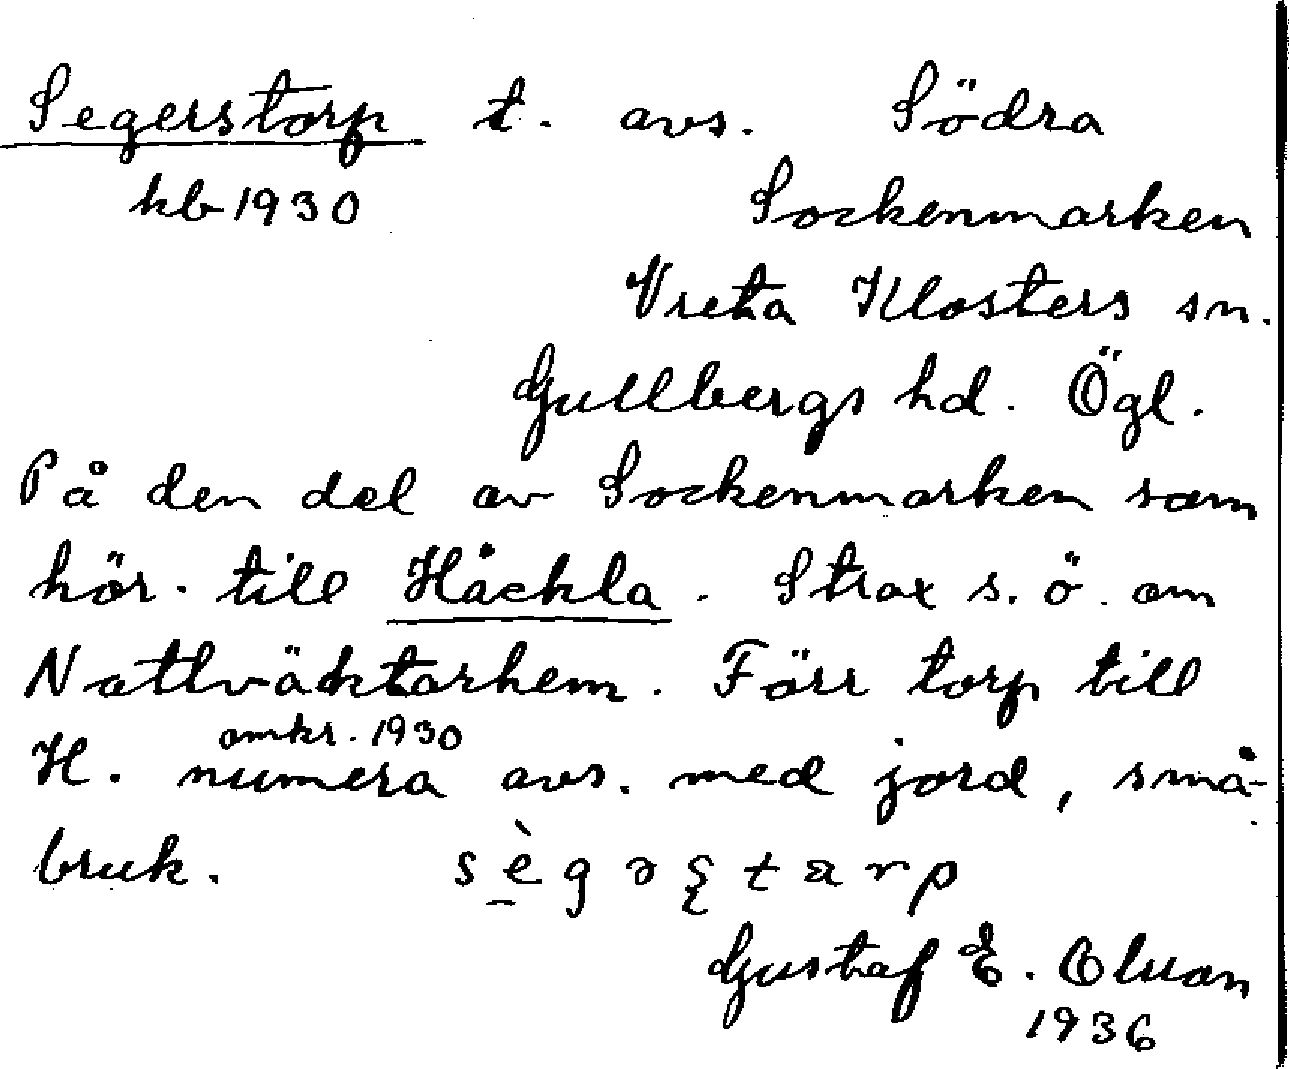 Segerstorp t. avs. Södra
kb 1930 Sockenmarken
Vreta Klosters sn.
Gullbergs hd. Ögl.
På den del av Sockenmarken som
hör. till Håckla. Strax s. ö. om
Nattväktarhem. Förr torp till
omkr. 1930
H. numera avs. med jord, små-
bruk. sègəʂtarp
Gustaf E.
1936